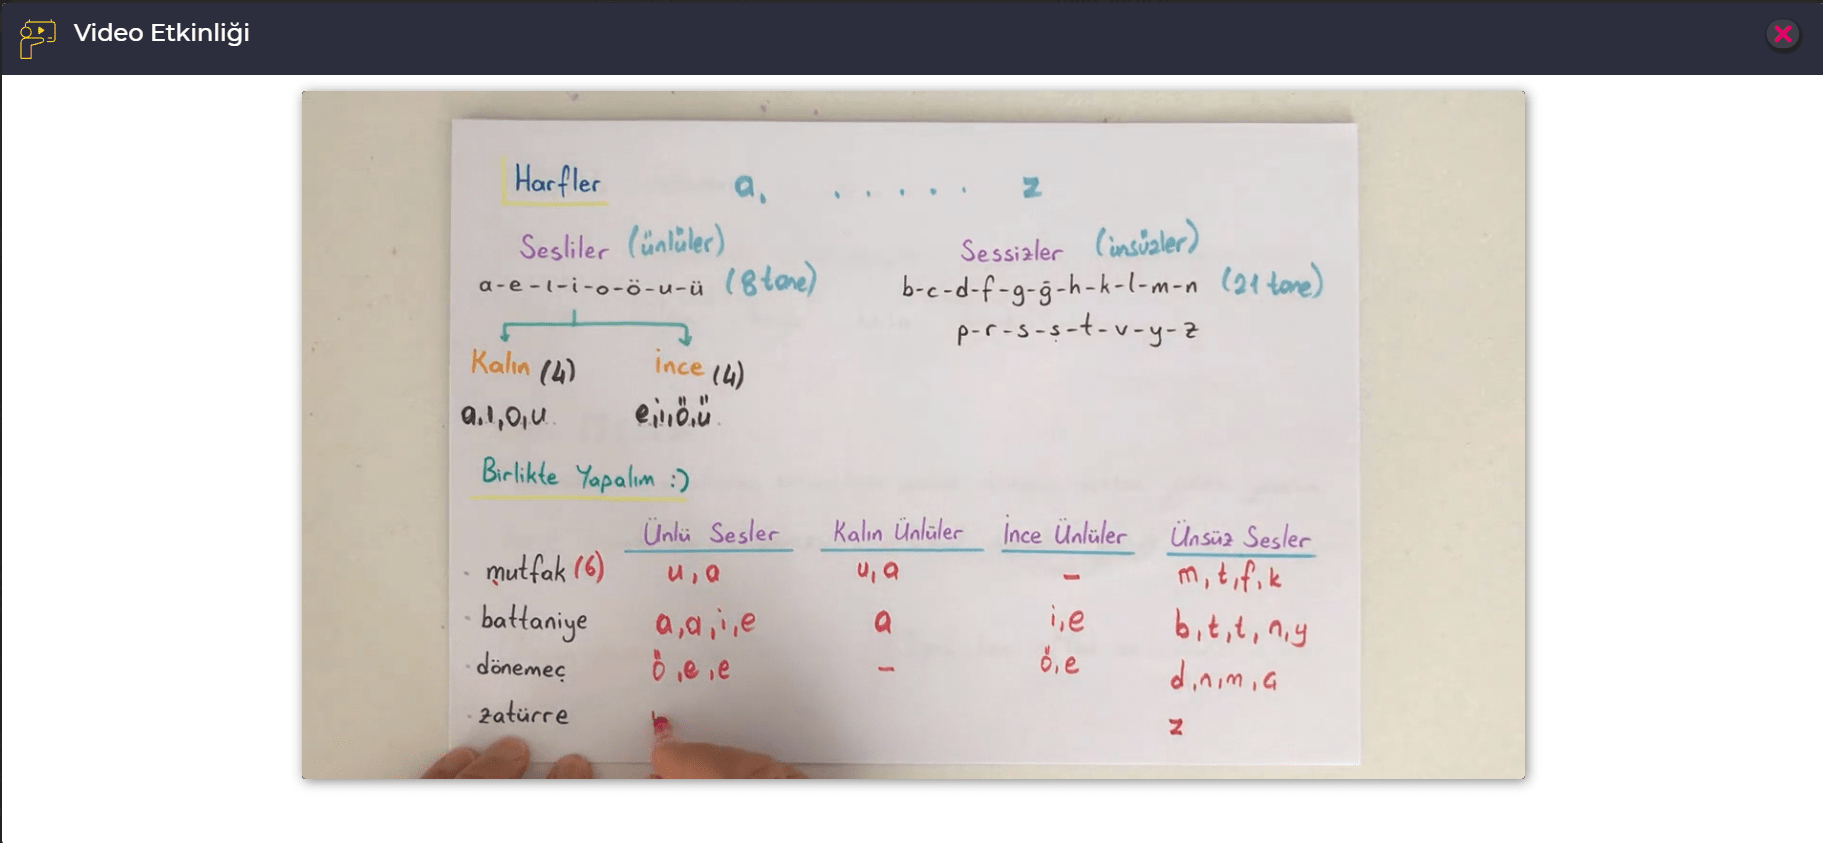 Video Etkinliği
Harfler a, . . . . . z
Sesliler (ünlüler)
a-e-ı-i-o-ö-u-ü (8 tane)
Kalın (4) ince (4)
a,ı,o,u e,i,ö,ü
Sessizler (ünsüzler)
b-c-d-f-g-ğ-h-k-l-m-n (21 tane)
p-r-s-ş-t-v-y-z
Birlikte Yapalım :)
Ünlü Sesler Kalın Ünlüler İnce Ünlüler Ünsüz Sesler
· mutfak (6) u, a u, a - m, t, f, k
· battaniye a, a, i, e a i, e b, t, t, n, y
· dönemeç ö, e, e - ö, e d, n, m,
· zatürre z